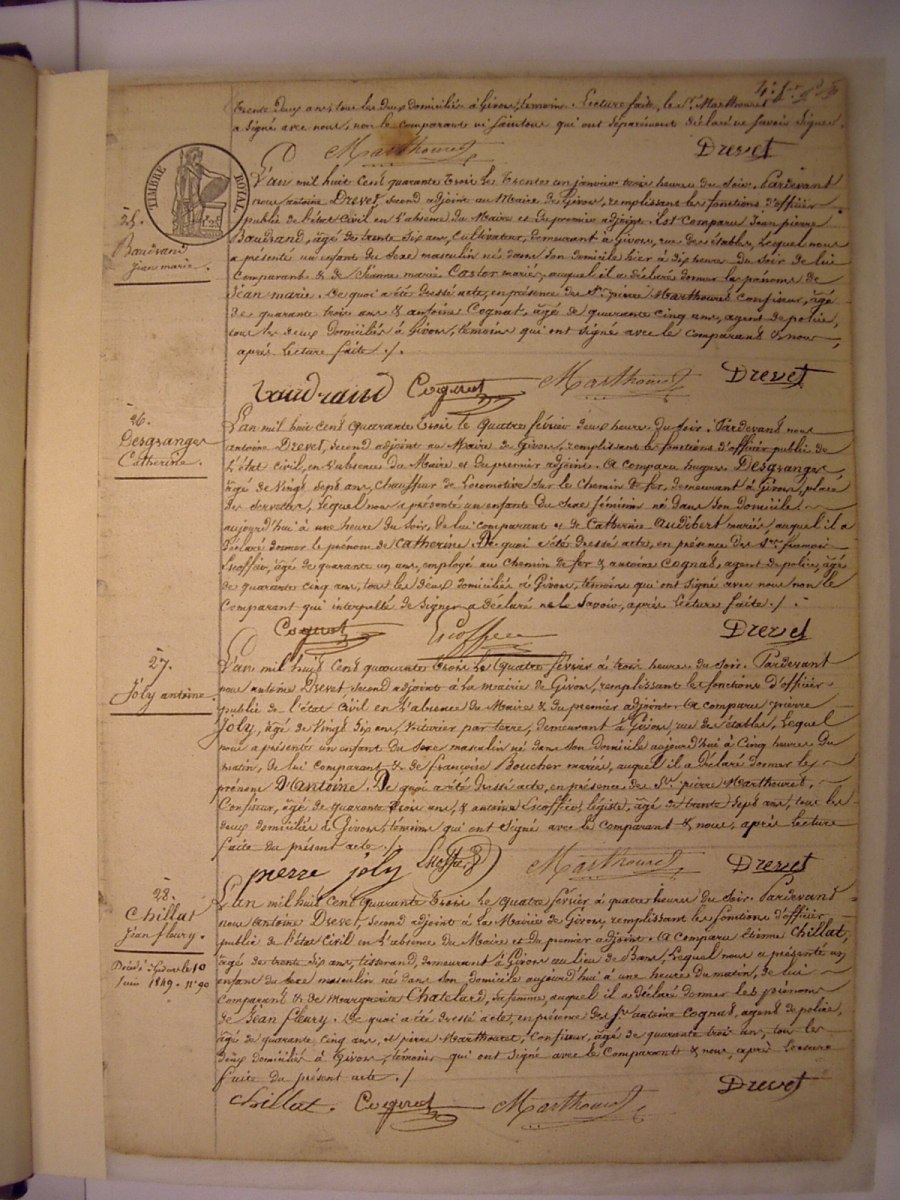 trente deux ans, tous les deux domiciliés à Givors, témoins. Lecture faite, le Sr. Marthouret
a signé avec nous, non le comparant ni qui ont séparément déclaré ne savoir signer.
Marthouret Drevet
TIMBRE ROYAL
25.
Baudrand
Jean marie.
L'an mil huit cent quarante trois le trente un janvier trois heures du soir. Pardevant
nous antoine Drevet, second adjoint au Maire de Givors, remplissant les fonctions d'officier
public de l'état Civil en l'absence du Maire et du premier adjoint. Est comparu Jean pierre
Baudrand, âgé de trente six ans, Cultivateur, demeurant à Givors, rue des étables, lequel nous
a présenté un enfant du sexe masculin né dans son domicile hier à dix heures du soir de lui
Comparant & de Jeanne marie Castor mariés, auquel il a déclaré donner les prénoms de
Jean marie. De quoi a été dressé acte, en présence des Srs. pierre Marthouret Confiseur, âgé
de quarante trois ans & antoine Cognat, âgé de quarante cinq ans, agent de police,
tous les deux domiciliés à Givors, témoins qui ont signé avec le comparant & nous,
après lecture faite ./.
Baudrand Cognat Marthouret Drevet
26.
Desgranges
Catherine.
L'an mil huit cent quarante trois le quatre février deux heures du soir. Pardevant nous
antoine Drevet, second adjoint au Maire de Givors, remplissant les fonctions d'officier public de
l'état civil, en l'absence du Maire et du premier adjoint. A comparu hugues Desgranges,
âgé de vingt sept ans, chauffeur de Locomotive sur le Chemin de fer, demeurant à Givors, place
des lequel nous a présenté un enfant du sexe féminin né dans son domicile
aujourd'hui à une heure du soir, de lui comparant et de Catherine Audibert mariés, auquel il a
déclaré donner le prénom de Catherine. De quoi a été dressé acte, en présence des Srs. francois
Escoffier, âgé de quarante un ans, employé au Chemin de fer & antoine Cognat, agent de police, âgé
de quarante cinq ans, tous les deux domiciliés à Givors, témoins qui ont signé avec nous non le
Comparant qui interpellé de signer a déclaré ne le Savoir, après lecture faite ./.
Cognat Escoffier Drevet
27.
Joly antoine
L'an mil huit cent quarante trois le quatre février à trois heures du soir. Pardevant
nous antoine Drevet, second adjoint à la mairie de Givors, remplissant les fonctions d'officier
public de l'état civil en l'absence du Maire & du premier adjoint. A comparu pierre
Joly, âgé de vingt six ans, voiturier par terre, demeurant à Givors, rue des étables, lequel
nous a présenté un enfant du sexe masculin né dans son domicile aujourd'hui à cinq heures du
matin, de lui comparant & de françoise Boucher mariés, auquel il a déclaré donner le
prénom D'antoine. De quoi a été dressé acte, en présence de Srs. pierre Marthouret,
Confiseur, âgé de quarante trois ans, & antoine Escoffier légiste, âgé de trente sept ans, tous les
deux domiciliés à Givors, témoins qui ont signé avec le comparant & nous, après lecture
faite du présent acte. /.
pierre joly Escoffier Marthouret Drevet
28.
Chillat
Jean fleury.
Décédé à Givors le 10
Juin 1849. N° 90
L'an mil huit cent quarante trois le quatre février à quatre heures du soir. Pardevant
nous antoine Drevet, second adjoint à la Mairie de Givors, remplissant les fonctions d'officier
public de l'état Civil en l'absence du Maire et du premier adjoint. A comparu Etienne Chillat,
âgé de trente six ans, tisserand, demeurant à Givors au lieu de Bans, lequel nous a présenté un
enfant du sexe masculin né dans son domicile aujourd'hui à une heure du matin, de lui
Comparant & de Marguerite Chatelard, sa femme, auquel il a déclaré donner les prénoms
de Jean fleury. De quoi a été dressé acte, en présence des Srs antoine Cognat, agent de police,
âgé de quarante cinq ans, et pierre Marthouret, Confiseur, âgé de quarante trois ans, tous les
deux domiciliés à Givors, témoins qui ont signé avec le Comparant & nous, après lecture
faite du présent acte ./
Chillat. Cognat Marthouret Drevet